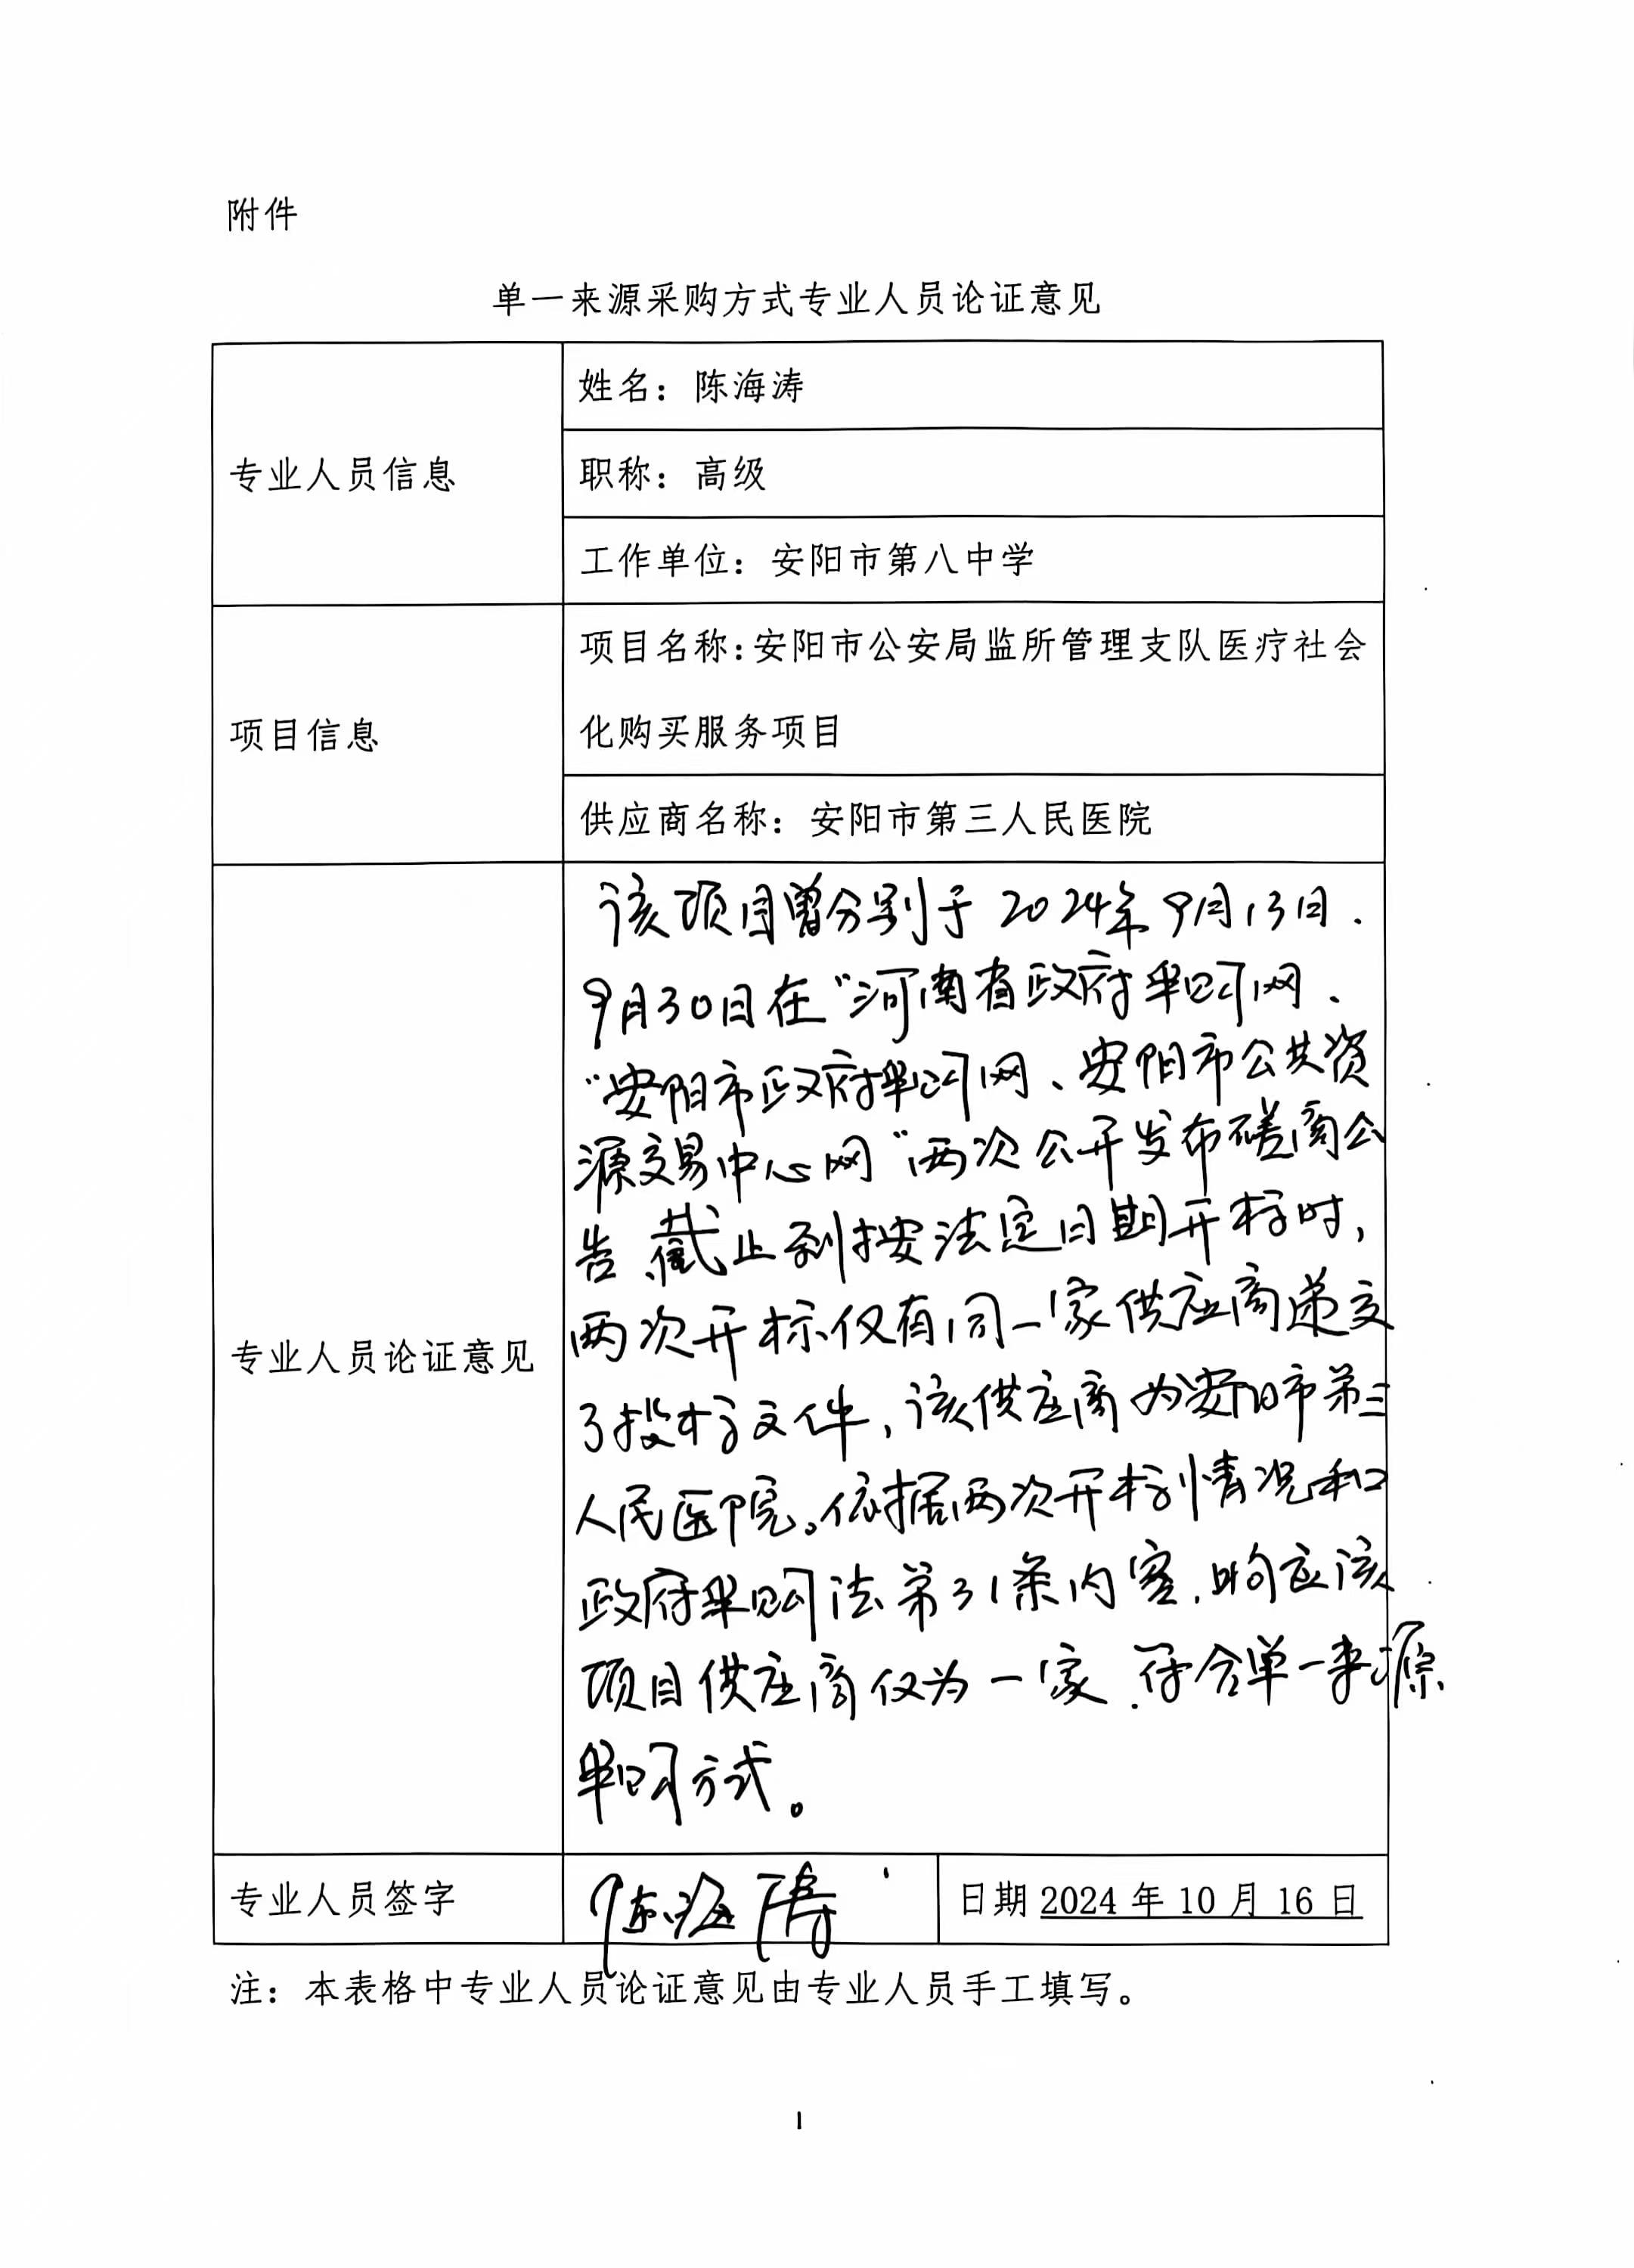 附件
单一来源采购方式专业人员论证意见
专业人员信息
姓名：陈海涛
职称：高级
工作单位：安阳市第八中学
项目信息
项目名称：安阳市公安局监所管理支队医疗社会
化购买服务项目
供应商名称：安阳市第三人民医院
专业人员论证意见
该项目曾分别于2024年9月13日.
9月30日在"河南省政府采购网、
"安阳市政府采购网、安阳市公共资
源交易中心网"两次公开发布磋商公
告 截止到按法定日期开标时，
两次开标仅有同一家供应商递交
了投标文件，该供应商为安阳市第三
人民医院。依据两次开标情况和
政府采购法第31条内容，响应该
项目供应商仅为一家.符合单一来源
采购方式。
专业人员签字
陈海涛
日期 2024 年 10 月 16 日
注：本表格中专业人员论证意见由专业人员手工填写。
1